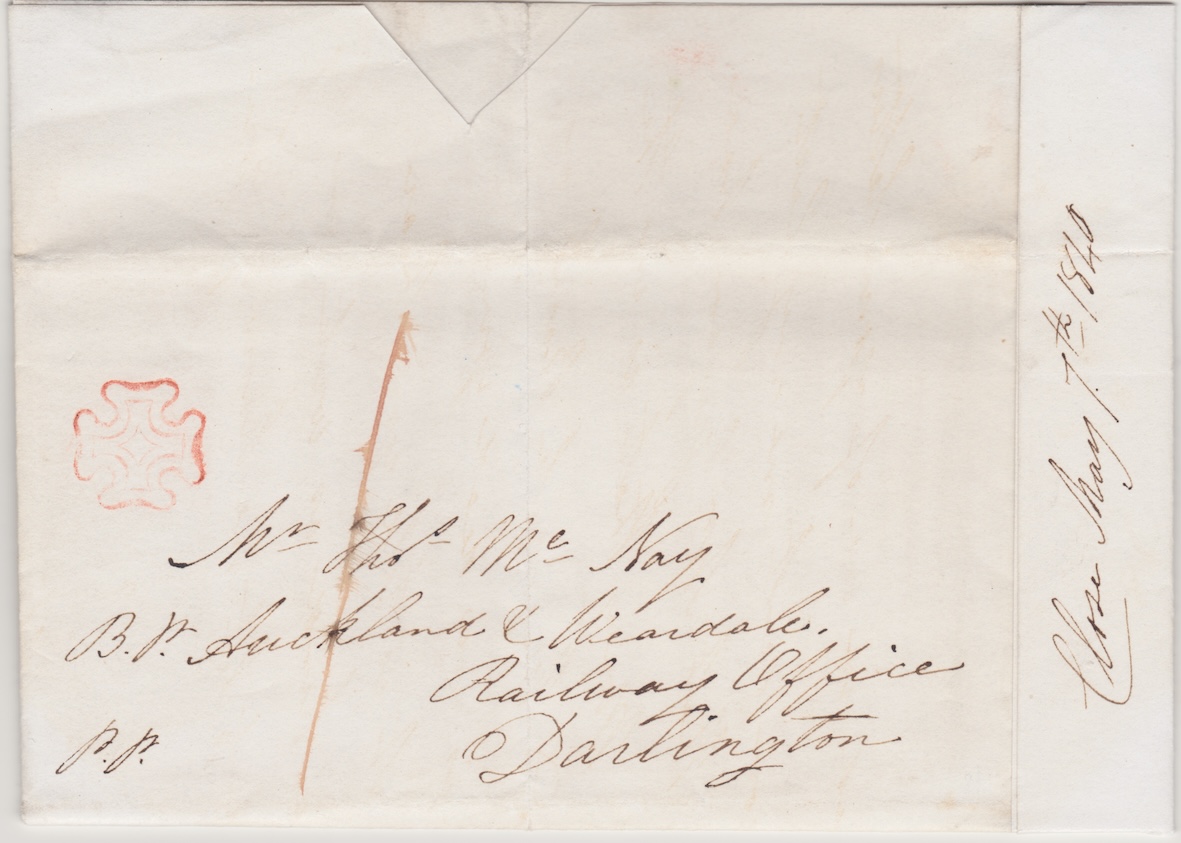 Mr Thos Mc Nay
B.p. Auckland & Weardale.
Railway Office
Darlington
P.P.
1
Close May 7th 1840